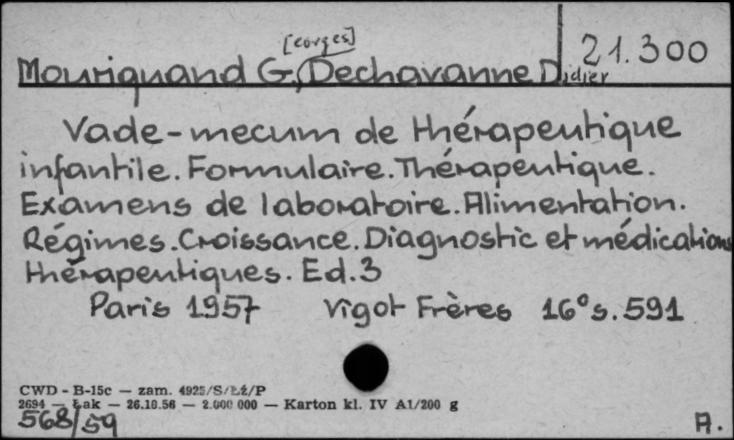 [eorges]
21.300
Mouriquand G., Dechavanne Didier
Vade-mecum de thérapeutique
infantile. Formulaire. Thérapeutique.
Examens de laboratoire. Alimentation.
Régimes. Croissance. Diagnostic et médications
thérapeutiques. Ed.3
Paris 1957 Vigot Frères 16° s. 591
CWD - B-15c — zam. 4925/S/Łź/P
2694 — Łak — 26.10.56 — 2.000 000 — Karton kl. IV A1/200 g
568/59
A.